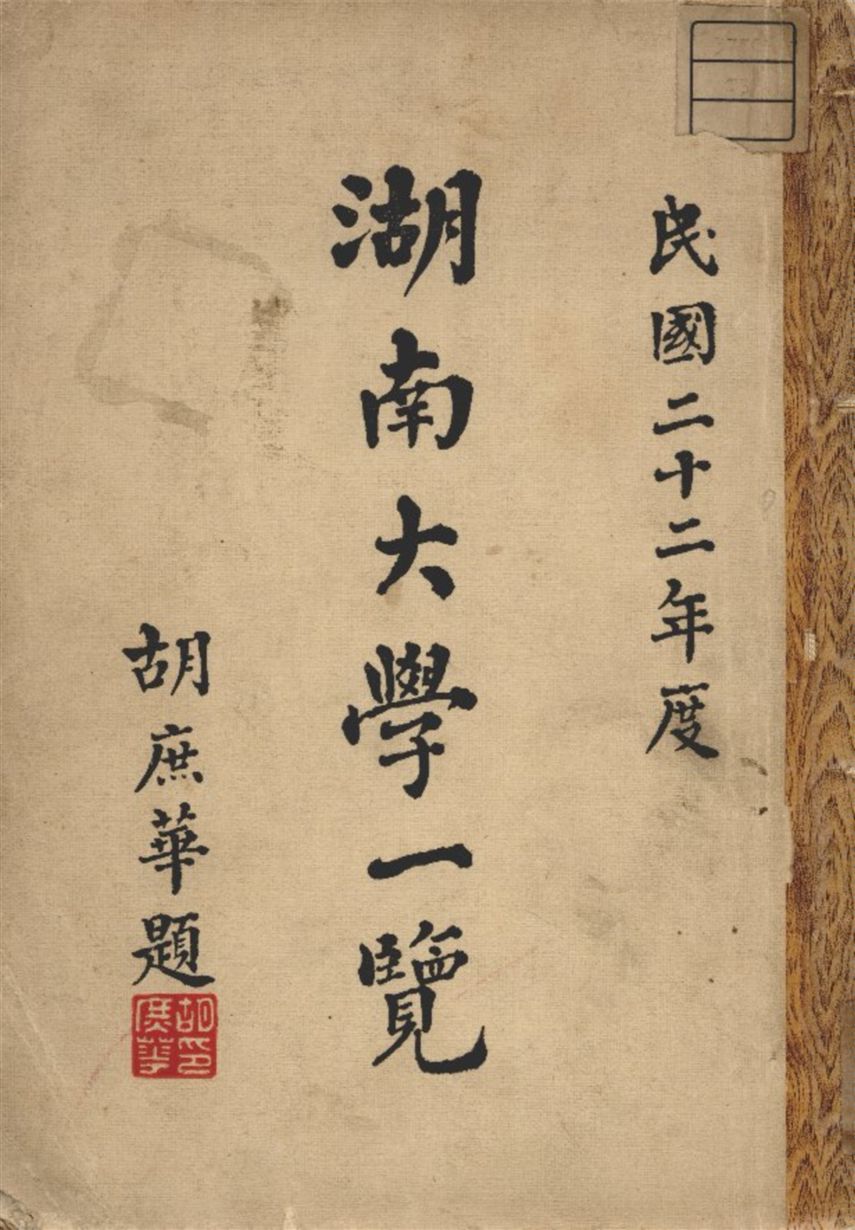 民國二十二年度
湖南大學一覽
胡庶華題
胡印
庶華